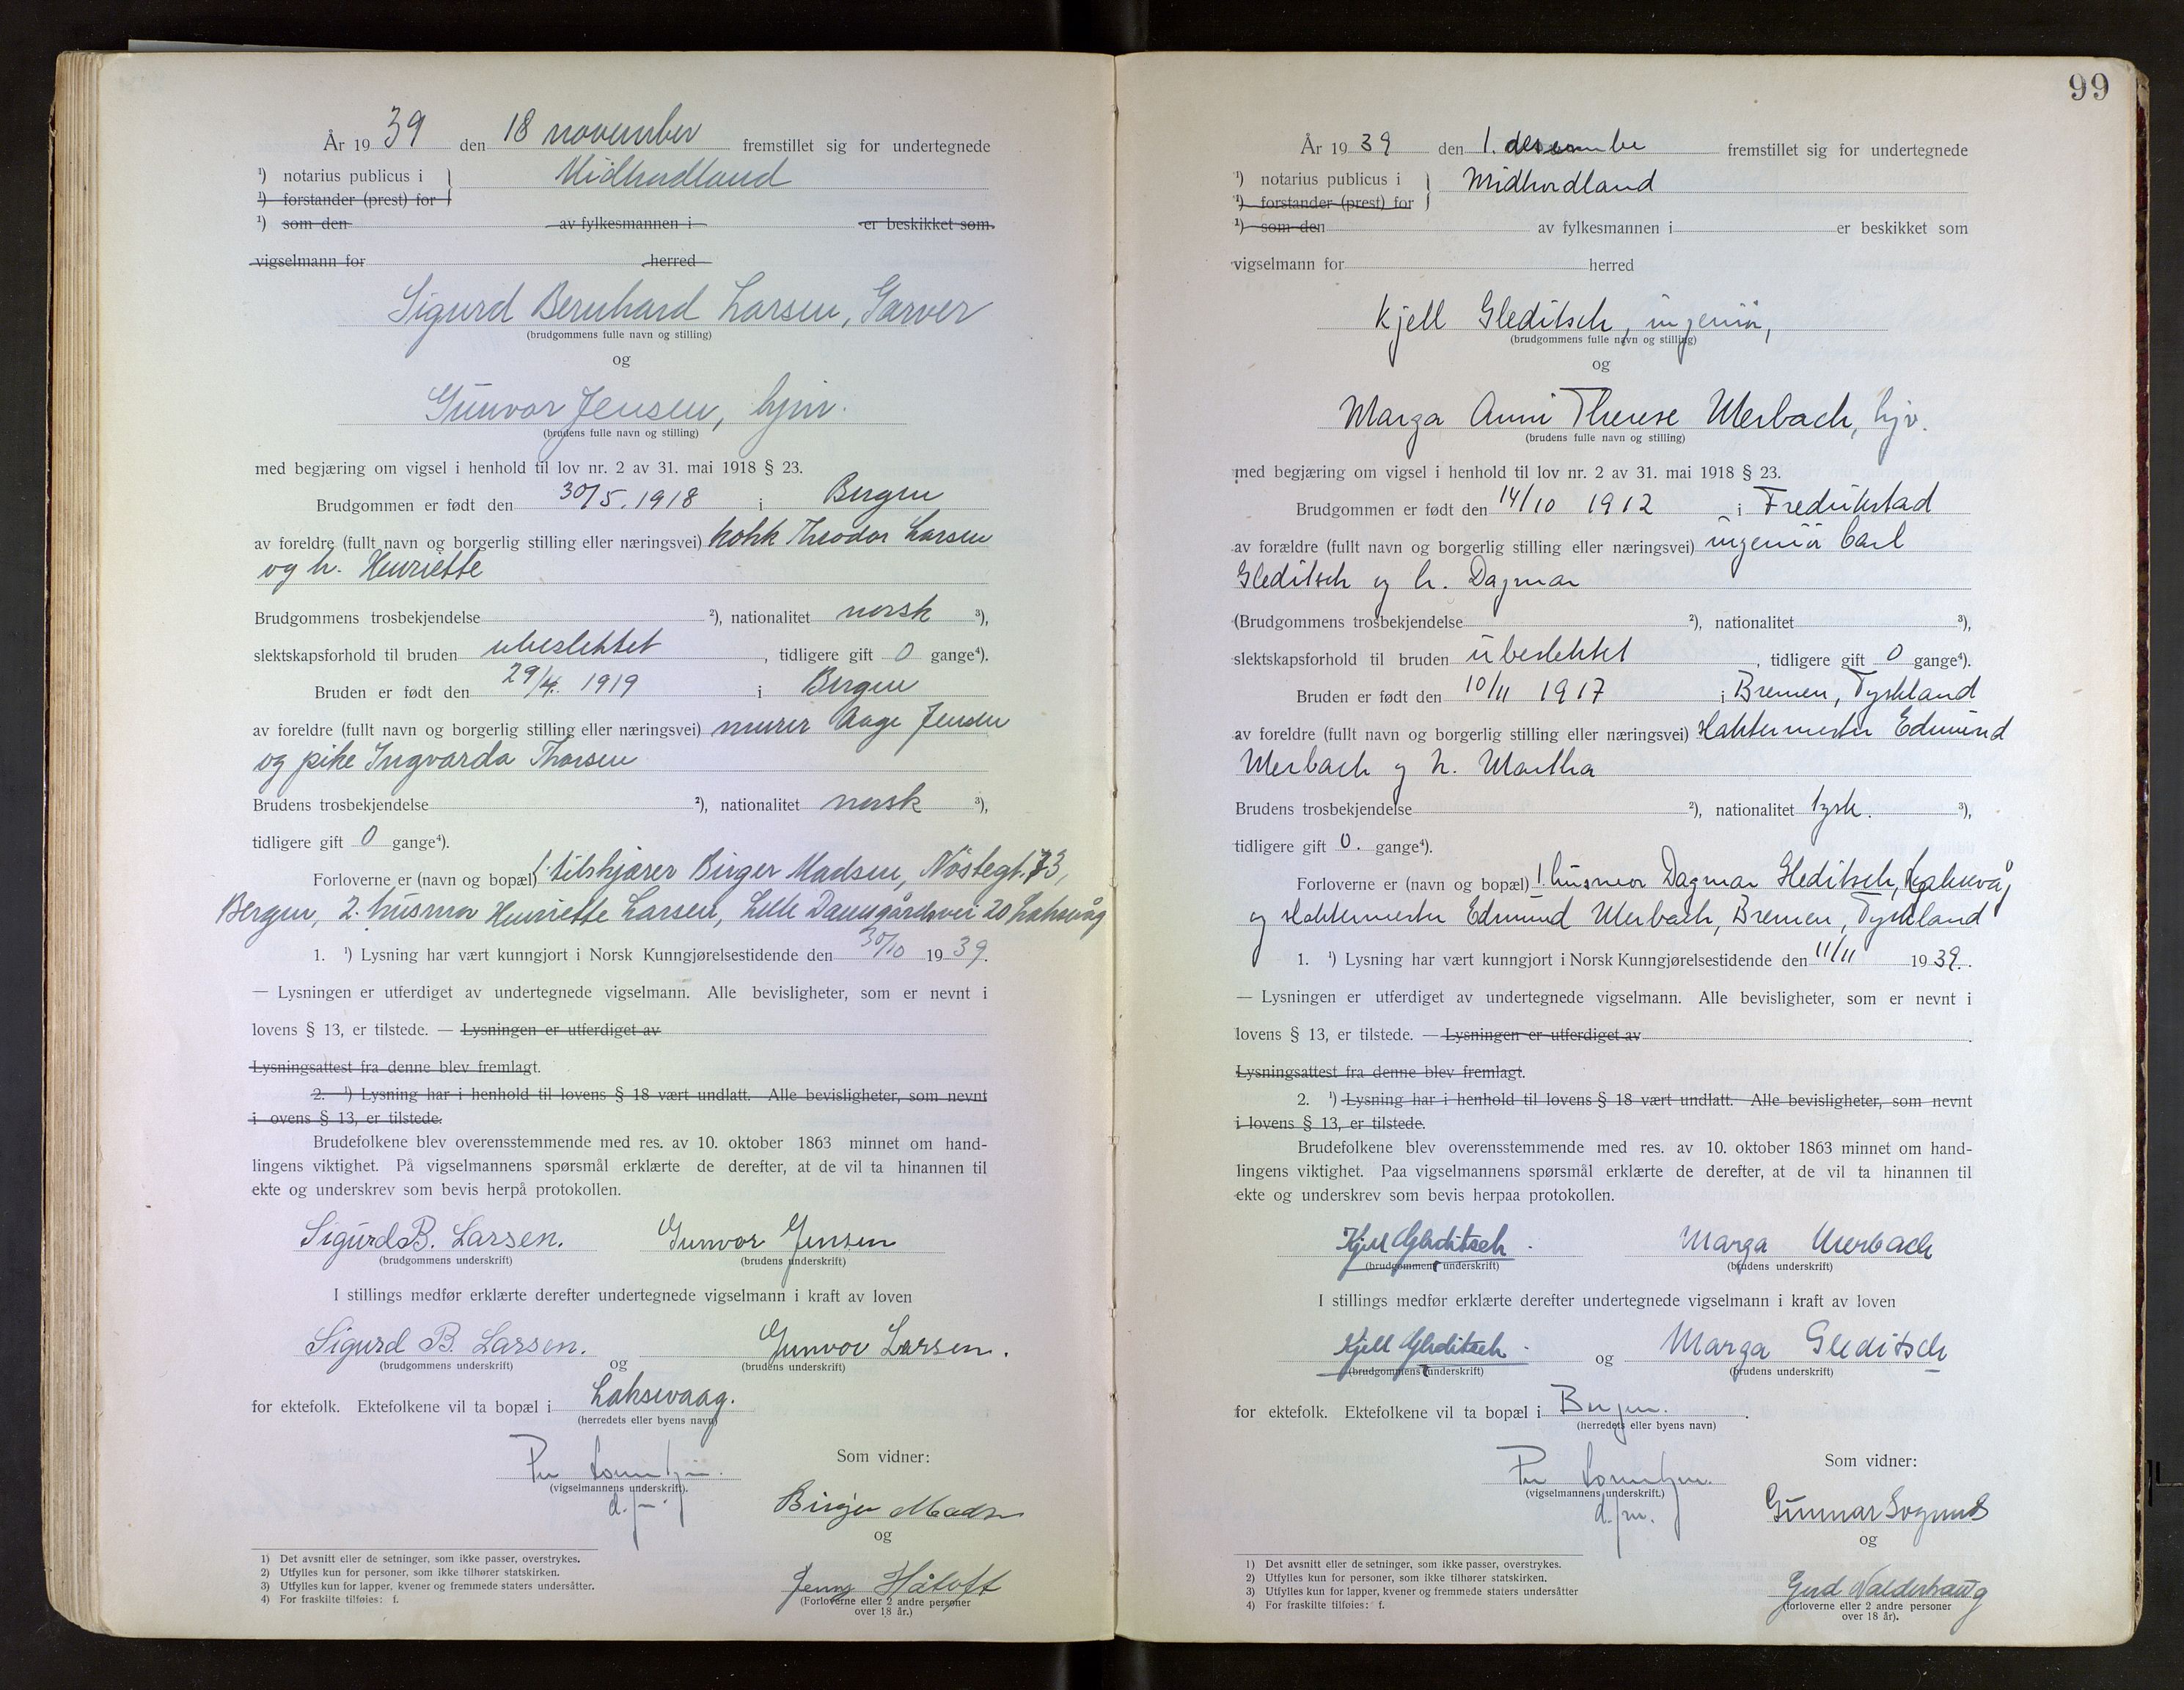 År 19 39 den 18 november fremstillet sig for undertegnede
¹) notarius publicus i } Midhordland
¹) forstander (prest) for
¹) som den av fylkesmannen i er beskikket som
vigselmann for herred
Sigurd Bernhard Larsen, Garver
(brudgommens fulle navn og stilling)
og
Gunvor Jensen, hjm.
(brudens fulle navn og stilling)
med begjæring om vigsel i henhold til lov nr. 2 av 31. mai 1918 § 23.
Brudgommen er født den 30/5. 1918 i Bergen
av foreldre (fullt navn og borgerlig stilling eller næringsvei) kokk Theodor Larsen
og h. Henriette
Brudgommens trosbekjendelse ²), nationalitet norsk ³),
slektskapsforhold til bruden ubeslektet, tidligere gift 0 gange⁴).
Bruden er født den 29/4. 1919 i Bergen
av foreldre (fullt navn og borgerlig stilling eller næringsvei) murer Aage Jensen
og pike Ingvarda Thorsen
Brudens trosbekjendelse ²), nationalitet norsk ³),
tidligere gift 0 gange⁴).
Forloverne er (navn og bopæl) 1. tilskjærer Birger Madsen, Nöstegt. 73,
Bergen, 2. husmor Henriette Larsen, Lille Damsgårdsvei 20 Laksevåg
1. ¹) Lysning har vært kunngjort i Norsk Kunngjørelsestidende den 30/10 19 39.
— Lysningen er utferdiget av undertegnede vigselmann. Alle bevisligheter, som er nevnt i
lovens § 13, er tilstede. — Lysningen er utferdiget av
Lysningsattest fra denne blev fremlagt.
2. ¹) Lysning har i henhold til lovens § 18 vært undlatt. Alle bevisligheter, som nevnt
i ovens § 13, er tilstede.
Brudefolkene blev overensstemmende med res. av 10. oktober 1863 minnet om hand-
lingens viktighet. På vigselmannens spørsmål erklærte de derefter, at de vil ta hinannen til
ekte og underskrev som bevis herpå protokollen.
Sigurd B. Larsen. Gunvor Jensen
(brudgommens underskrift) (brudens underskrift)
I stillings medfør erklærte derefter undertegnede vigselmann i kraft av loven
Sigurd B. Larsen. og Gunvor Larsen.
(brudgommens underskrift) (brudens underskrift)
for ektefolk. Ektefolkene vil ta bopæl i Laksevaag.
(herredets eller byens navn)
Som vidner:
Per
(vigselmannens underskrift).
Birger Madsn
og
Jenny Håtoft
(Forloverne eller 2 andre personer
over 18 år.)
1) Det avsnitt eller de setninger, som ikke passer, overstrykes.
2) Utfylles kun for personer, som ikke tilhører statskirken.
3) Utfylles kun for lapper, kvener og fremmede staters undersåtter.
4) For fraskilte tilføies: f.
99
År 19 39 den 1. desember fremstillet sig for undertegnede
¹) notarius publicus i } Midhordland
¹) forstander (prest) for
¹) som den av fylkesmannen i er beskikket som
vigselmann for herred
Kjell Gleditsch, ingeniör,
(brudgommens fulle navn og stilling)
og
Marga Anni Therese Uerbach, hjv.
(brudens fulle navn og stilling)
med begjæring om vigsel i henhold til lov nr. 2 av 31. mai 1918 § 23.
Brudgommen er født den 14/10 1912 i Fredrikstad
av forældre (fullt navn og borgerlig stilling eller næringsvei) ingeniör Carl
Gleditsch og h. Dagmar
(Brudgommens trosbekjendelse ²), nationalitet ³),
slektskapsforhold til bruden ubeslektet, tidligere gift 0 gange⁴).
Bruden er født den 10/11 1917 i Bremen, Tyskland
av foreldre (fullt navn og borgerlig stilling eller næringsvei) slaktermester Edmund
Uerbach og h. Martha
Brudens trosbekjendelse ²), nationalitet tysk. ³),
tidligere gift 0. gange⁴).
Forloverne er (navn og bopæl) 1. husmor Dagmar Gleditsch, Laksevåg
og slaktermester Edmund Uerbach, Bremen, Tyskland
1. ¹) Lysning har vært kunngjort i Norsk Kunngjørelsestidende den 11/11 19 39.
— Lysningen er utferdiget av undertegnede vigselmann. Alle bevisligheter, som er nevnt i
lovens § 13, er tilstede. — Lysningen er utferdiget av
Lysningsattest fra denne blev fremlagt.
2. ¹) Lysning har i henhold til lovens § 18 vært undlatt. Alle bevisligheter, som nevnt
i lovens § 13, er tilstede.
Brudefolkene blev overensstemmende med res. av 10. oktober 1863 minnet om hand-
lingens viktighet. Paa vigselmannens spørsmål erklærte de derefter, at de vil ta hinannen til
ekte og underskrev som bevis herpaa protokollen.
Kjell Gleditsch. Marga Uerbach
(brudgommens underskrift) (brudens underskrift)
I stillings medfør erklærte derefter undertegnede vigselmann i kraft av loven
Kjell Gleditsch. og Marga Gleditsch
(brudgommens underskrift) (brudens underskrift)
for ektefolk. Ektefolkene vil ta bopæl i Bergen.
(herredets eller byens navn)
Som vidner:
Per
(vigselmannens underskrift.)
d.fm.
Gunnar
og
Gerd Nalderhaug
(forloverne eller 2 andre personer
over 18 år).
1) Det avsnitt eller de setninger, som ikke passer, overstrykes.
2) Utfylles kun for personer, som ikke tilhører statskirken.
3) Utfylles kun for lapper, kvener og fremmede staters undersåtter
4) For fraskilte tilføies: f.